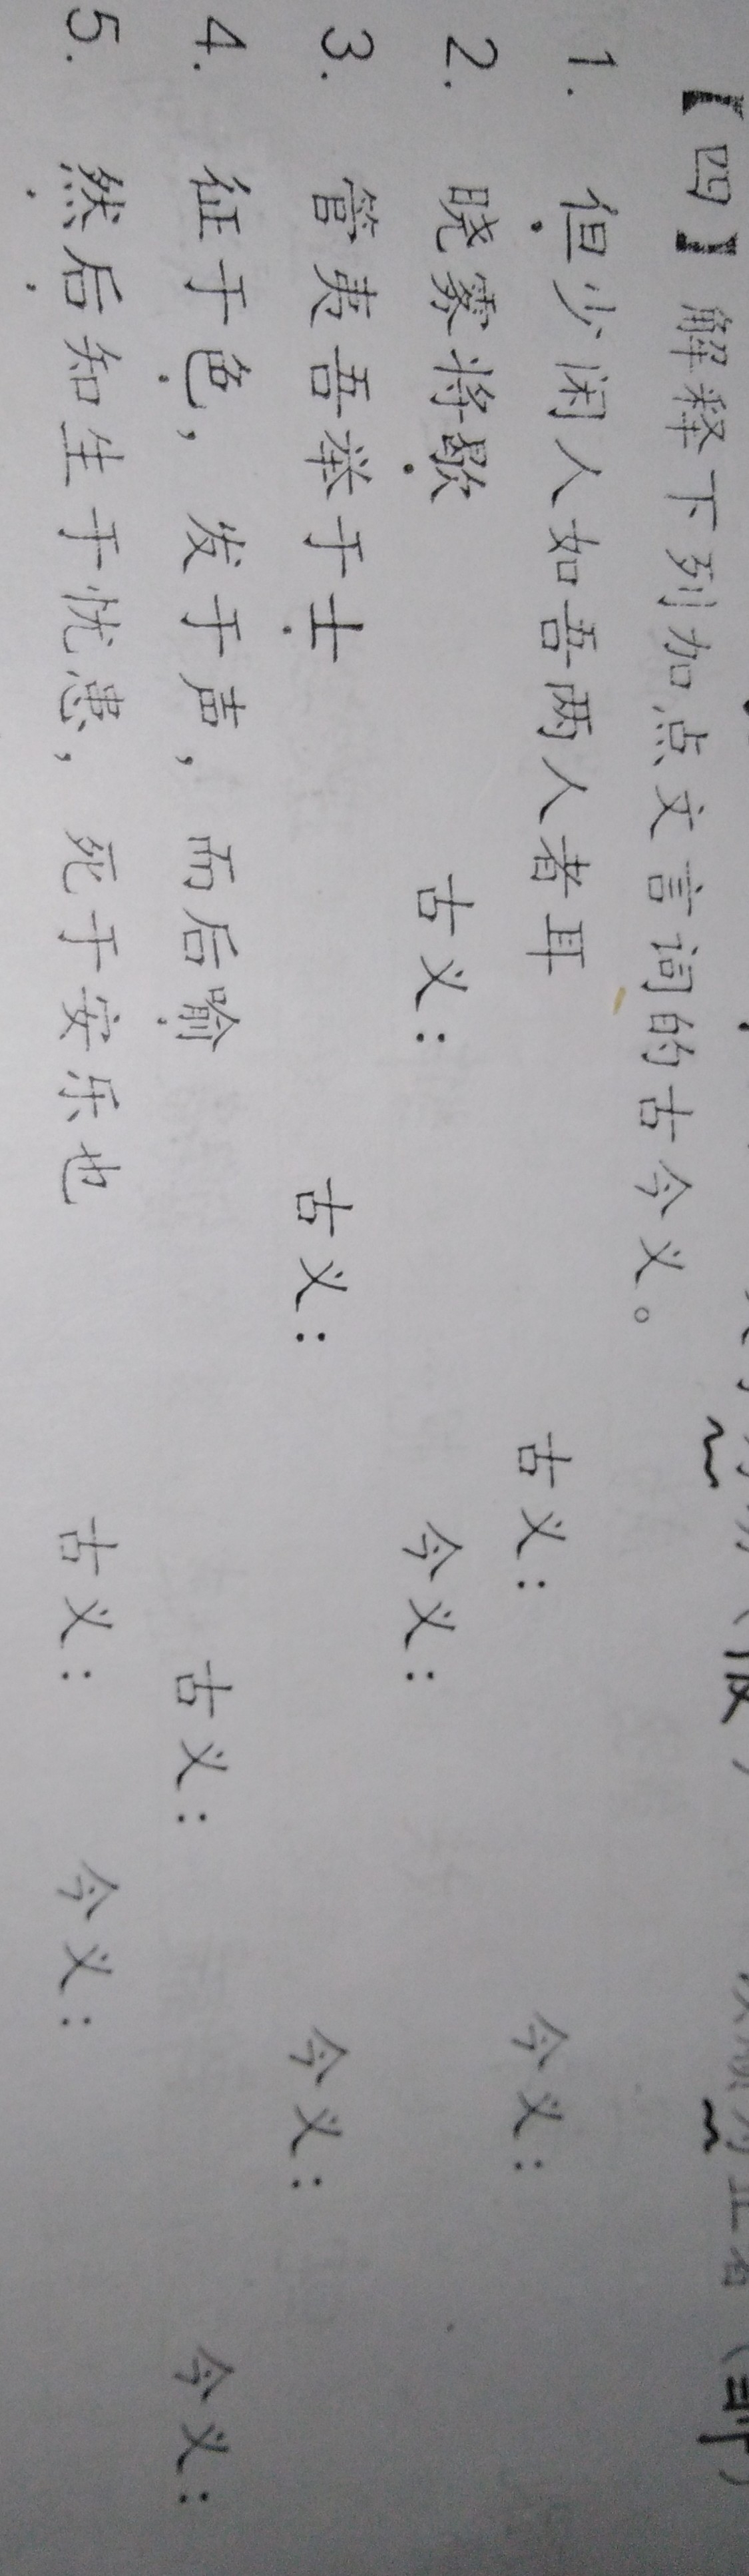 【四】解释下列加点文言词的古今义。
1. 但少闲人如吾两人者耳 古义： 今义：
2. 晓雾将歇 古义： 今义：
3. 管夷吾举于士 古义： 今义：
4. 征于色，发于声，而后喻 古义： 今义：
5. 然后知生于忧患，死于安乐也 古义： 今义：